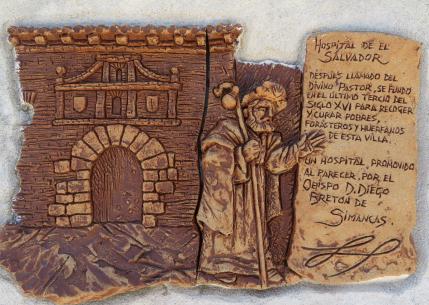 HOSPITAL DE EL
SALVADOR
DESPUÉS LLAMADO DEL
DIVINO PASTOR, SE FUNDO
EN EL ÚLTIMO TERCIO DEL
SIGLO XVI PARA RECOGER
Y CURAR POBRES,
FORASTEROS Y HUERFANOS
DE ESTA VILLA.
UN HOSPITAL, PROMOVIDO
AL PARECER, POR EL
OBISPO D. DIEGO
BRETON DE
SIMANCAS.